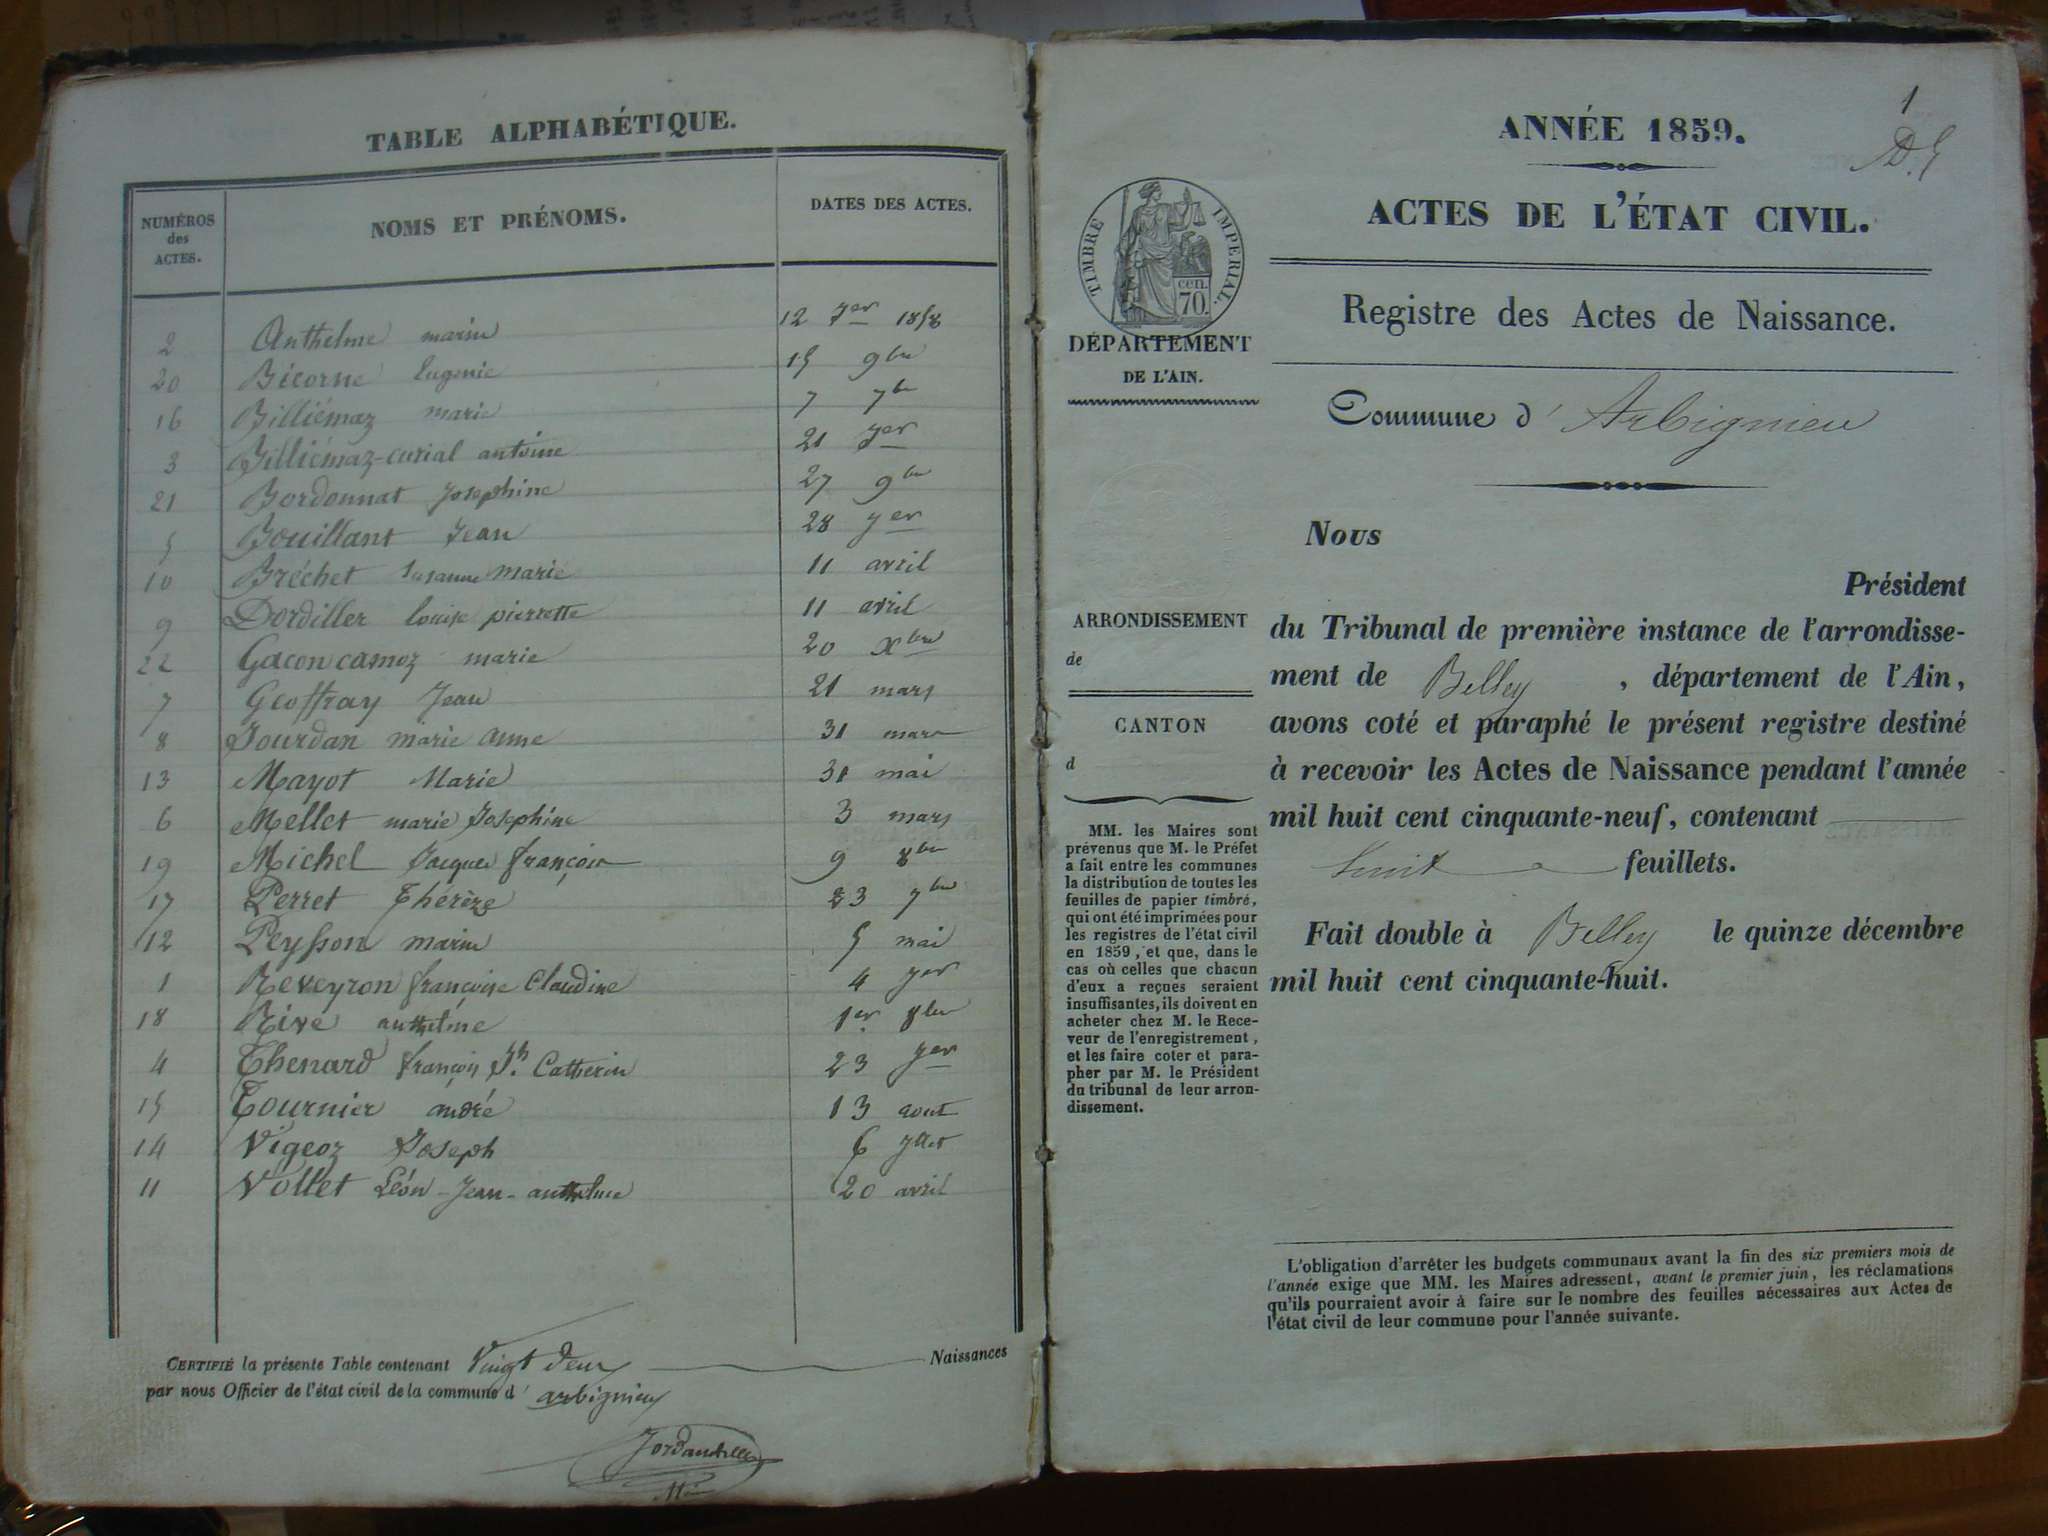 TABLE ALPHABÉTIQUE.
NUMÉROS des ACTES. NOMS ET PRÉNOMS. DATES DES ACTES.
2 Anthelme marin 12 Jer 1858
20 Bicorne Eugenie 15 9bre
16 Billiémaz marie 7 7bre
3 Billiémaz-curial antoine 21 Jer
21 Bordonnat Josephine 27 9bre
5 Bouillant Jean 28 Jer
10 Bréchet Susanne Marie 11 avril
9 Dordiller louise pierrette 11 avril
22 Gacon camoz marie 20 Xbre
7 Geoffray Jean 21 mars
8 Jourdan marie anne 31 mars
13 Mayot Marie 31 mai
6 Mellet marie Josephine 3 mars
19 Michel Jacques françois 9 8bre
17 Perret Thérèze 23 7bre
12 Peysson marin 5 mai
1 Reveyron françoise Claudine 4 Jer
18 Rive anthelme 1er 8bre
4 Thenard françois Jh. Catherin 23 Jer
15 Tournier andré 13 aout
14 Vigeoz Joseph 6 Jllet
11 Vollet Léon-Jean-anthelme 20 avril
CERTIFIÉ la présente Table contenant Vingt deux Naissances
par nous Officier de l'état civil de la commune d' arbignieu
1
ANNÉE 1859.
ACTES DE L'ÉTAT CIVIL.
TIMBRE IMPERIAL.
cen.
70.
Registre des Actes de Naissance.
DÉPARTEMENT
DE L'AIN.
Commune d' Arbignieu
Nous
Président
ARRONDISSEMENT
de
CANTON
d
du Tribunal de première instance de l'arrondisse-
ment de Belley , département de l'Ain,
avons coté et paraphé le présent registre destiné
à recevoir les Actes de Naissance pendant l'année
mil huit cent cinquante-neuf, contenant
huit feuillets.
Fait double à Belley le quinze décembre
mil huit cent cinquante-huit.
MM. les Maires sont
prévenus que M. le Préfet
a fait entre les communes
la distribution de toutes les
feuilles de papier timbré,
qui ont été imprimées pour
les registres de l'état civil
en 1859, et que, dans le
cas où celles que chacun
d'eux a reçues seraient
insuffisantes, ils doivent en
acheter chez M. le Rece-
veur de l'enregistrement,
et les faire coter et para-
pher par M. le Président
du tribunal de leur arron-
dissement.
L'obligation d'arrêter les budgets communaux avant la fin des six premiers mois de
l'année exige que MM. les Maires adressent, avant le premier juin, les réclamations
qu'ils pourraient avoir à faire sur le nombre des feuilles nécessaires aux Actes de
l'état civil de leur commune pour l'année suivante.